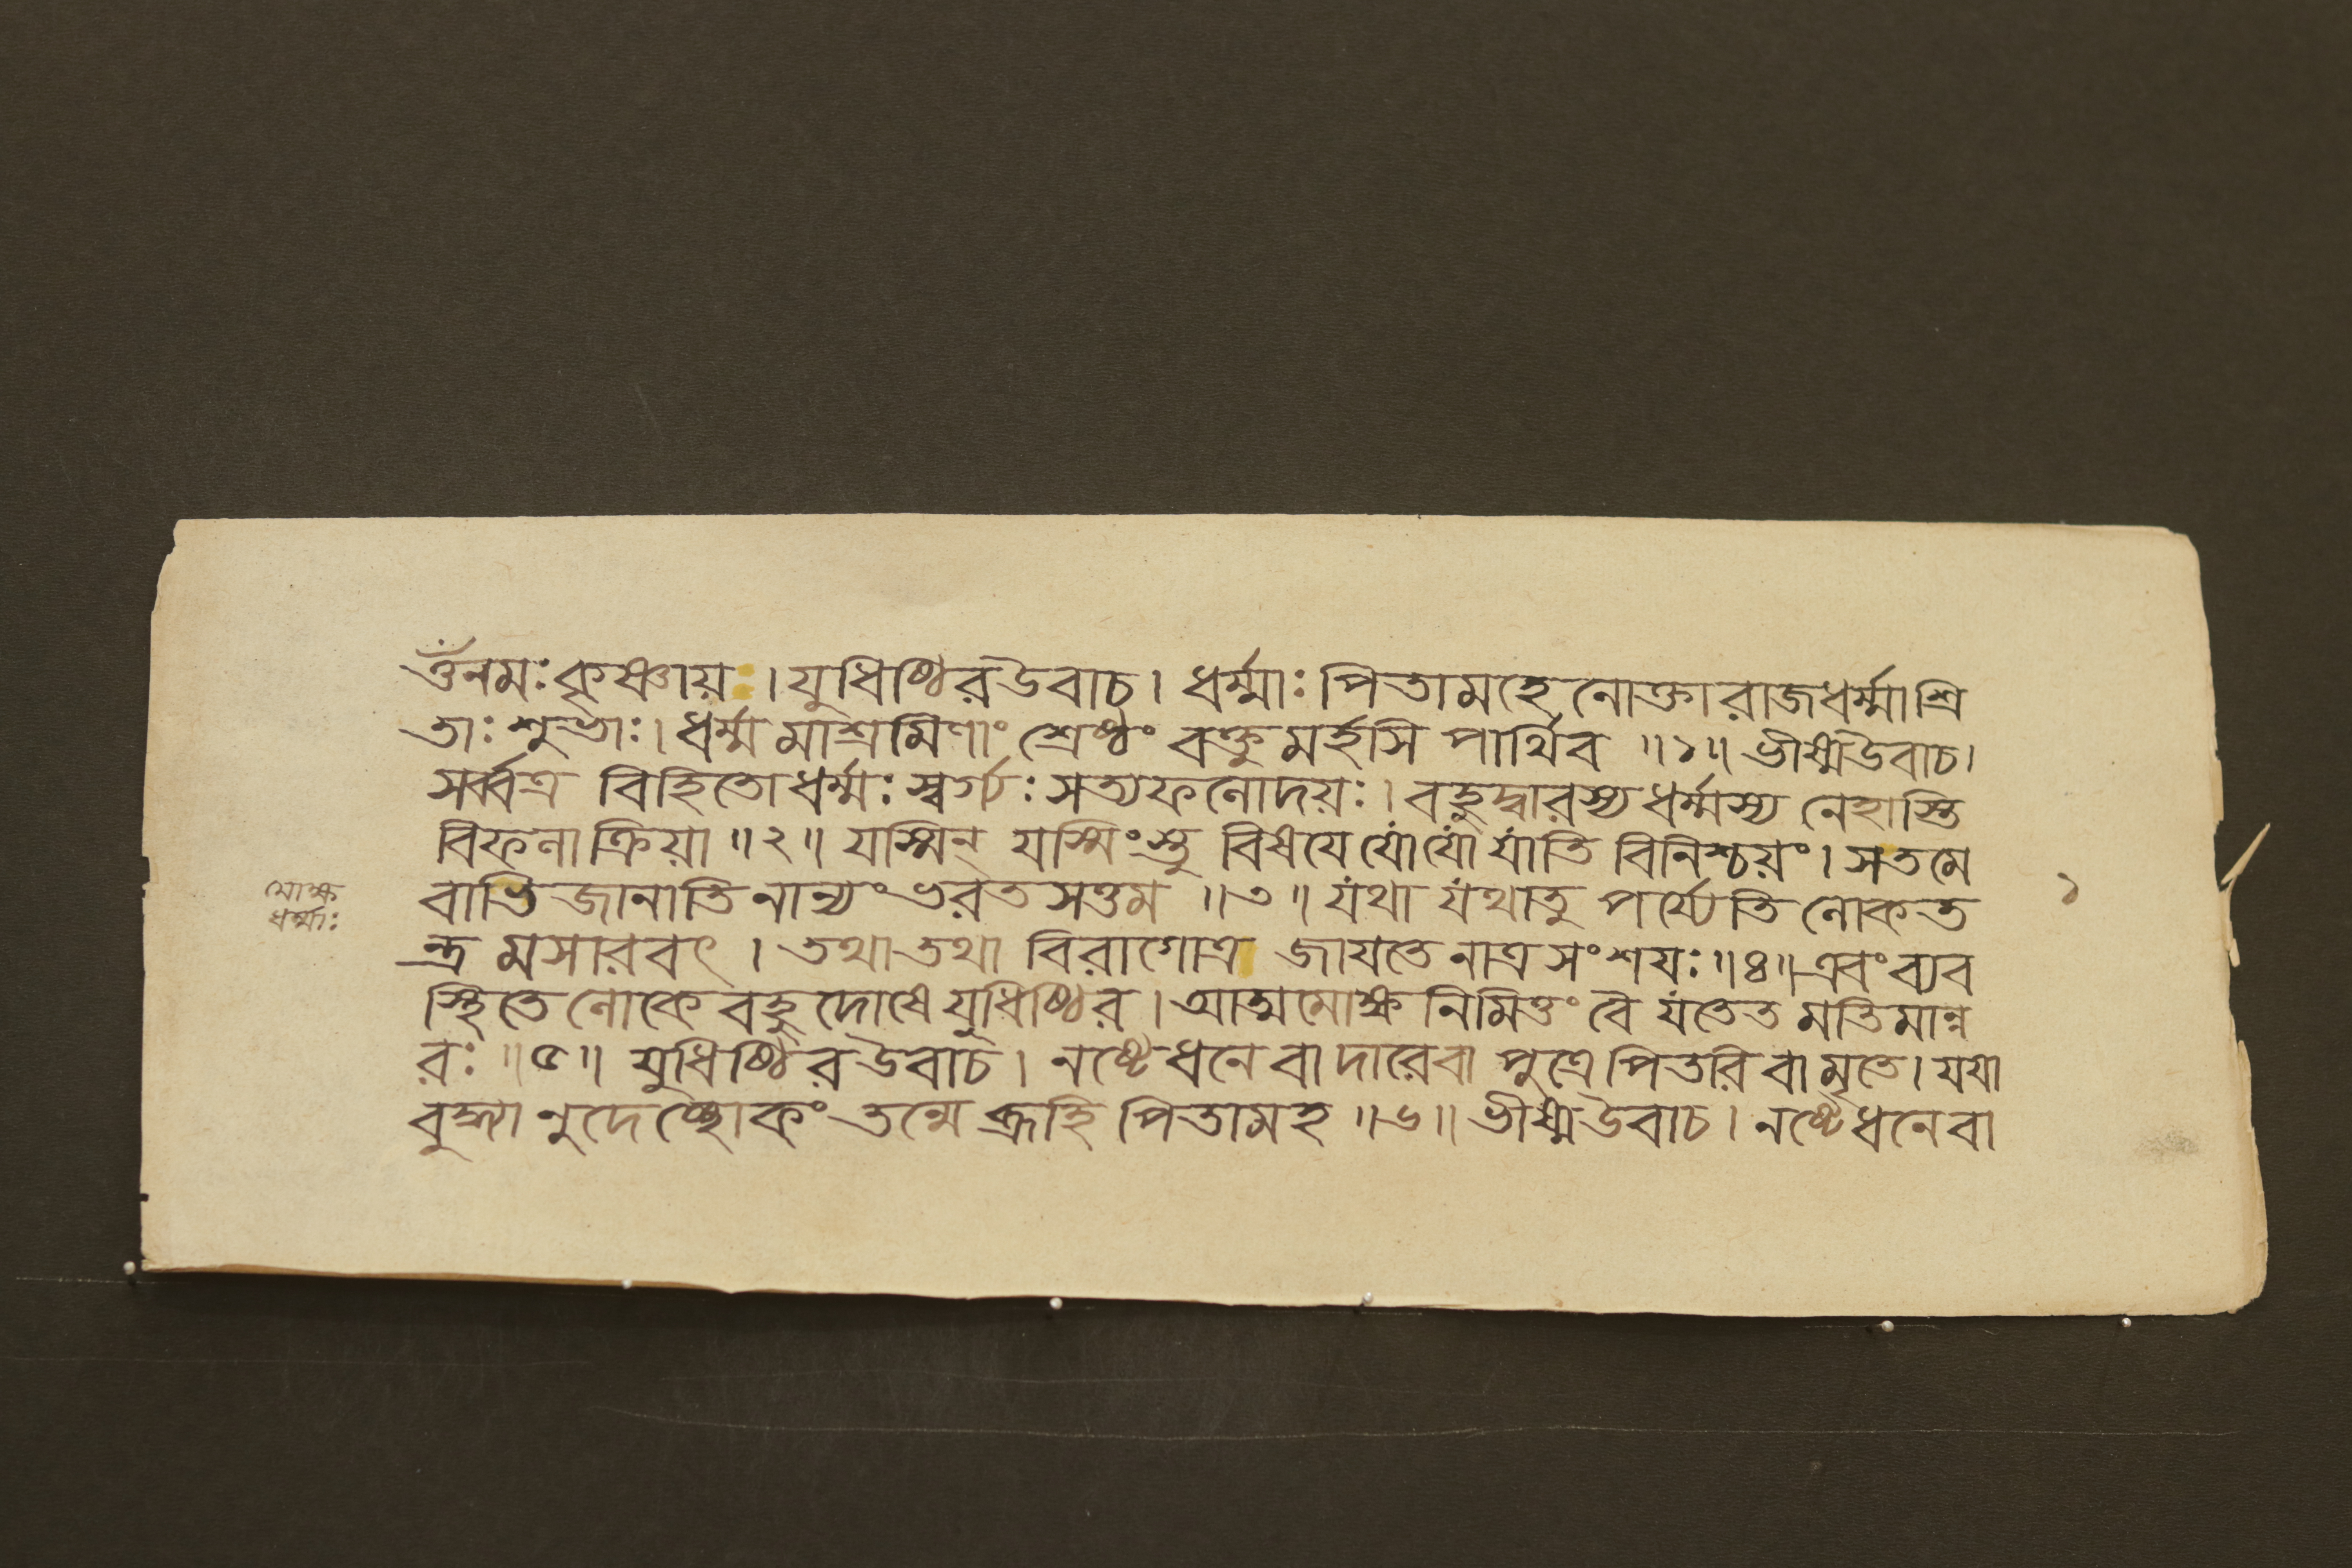 ওঁ নমঃ কৃষ্ণায় । যুধিষ্ঠির উবাচ । ধর্ম্মাঃ পিতামহেনোক্তা রাজধর্ম্মাশ্রি
তাঃ শুভাঃ । ধর্ম্মমাশ্রমিণাং শ্রেষ্ঠং বক্তুমর্হসি পার্থিব ॥১॥ ভীষ্ম উবাচ ।
সর্ব্বত্র বিহিতো ধর্ম্মঃ স্বর্গ্যঃ সত্যফলোদয়ঃ । বহুদ্বারস্য ধর্ম্মস্য নেহাস্তি
বিফলা ক্রিয়া ॥২॥ যস্মিন্ যস্মিংস্তু বিষয়ে যো যো যাতি বিনিশ্চয়ং । স তমে
মোক্ষ
ধর্ম্মাঃ
বাভিজানাতি নান্যং ভরতসত্তম ॥৩॥ যথা যথা তু পর্য্যেতি লোকত
১
ন্ত্রমসারবৎ । তথা তথা বিরাগোত্র জায়তে নাত্র সংশয়ঃ ॥৪॥ এবং ব্যব
স্থিতে লোকে বহুদোষে যুধিষ্ঠির । আত্মমোক্ষনিমিত্তং বৈ যতেত মতিমান্ন
রঃ ॥৫॥ যুধিষ্ঠির উবাচ । নষ্টে ধনে বা দারে বা পুত্রে পিতরি বা মৃতে । যয়া
বুদ্ধ্যা নুদেচ্ছোকং তন্মে ব্রূহি পিতামহ ॥৬॥ ভীষ্ম উবাচ । নষ্টে ধনে বা